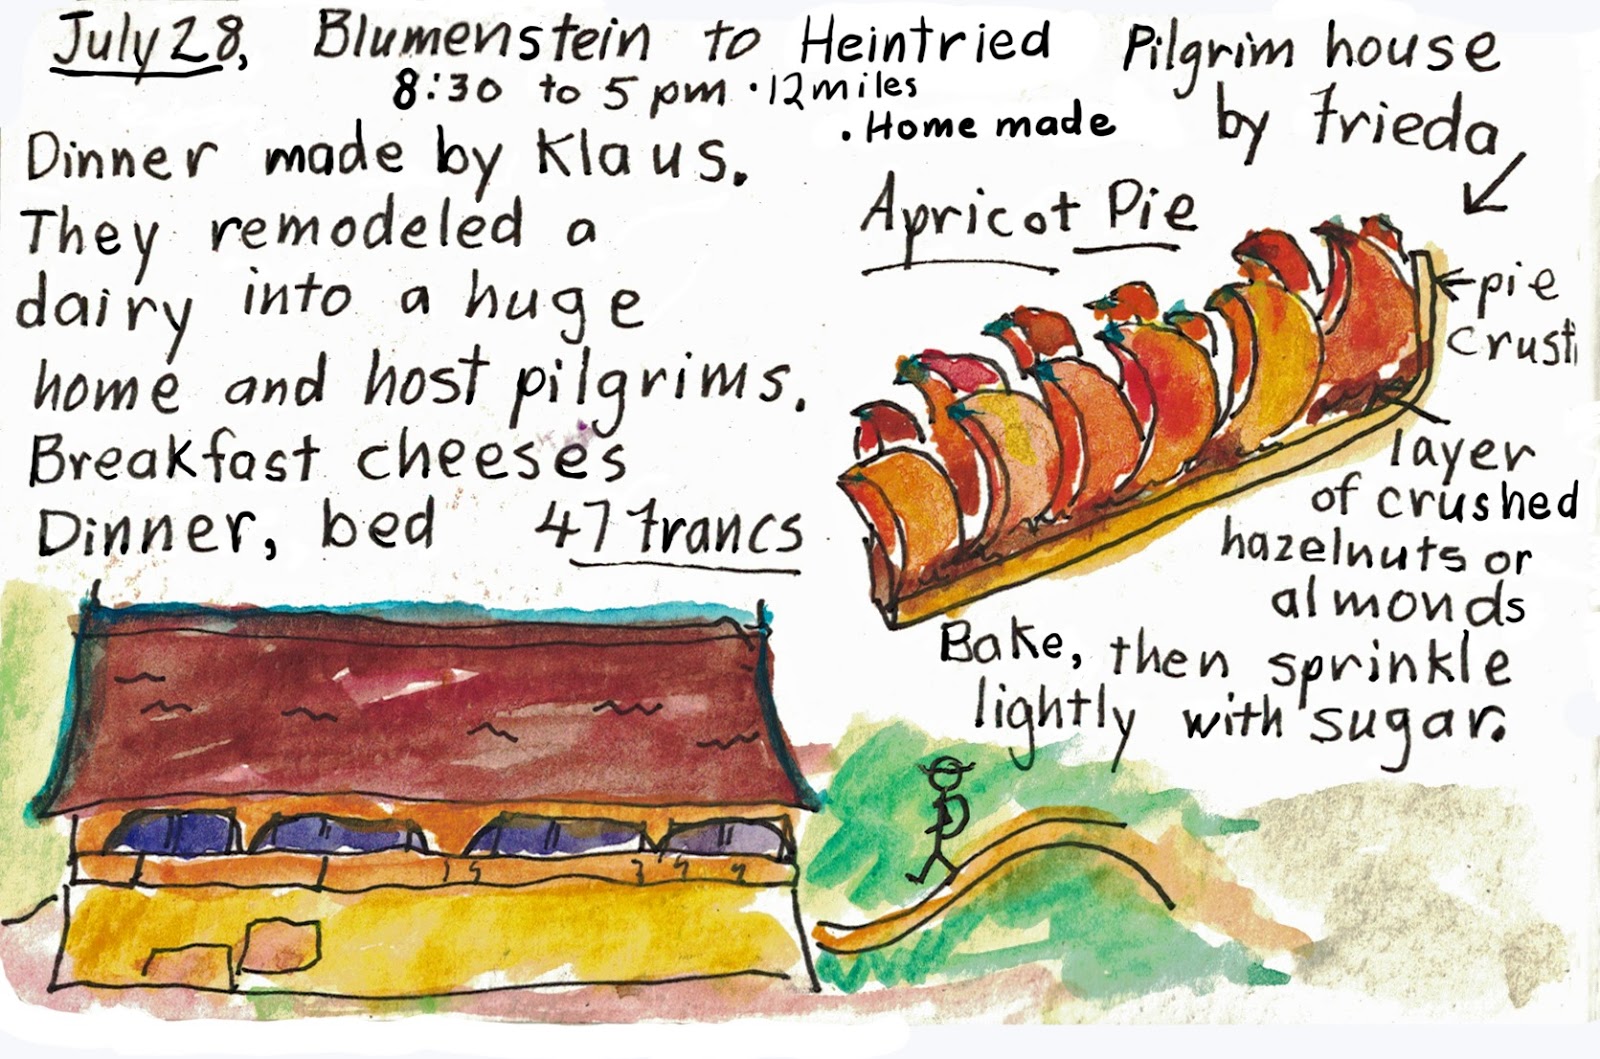 July 28, Blumenstein to Heintried
8:30 to 5 pm · 12 miles
Pilgrim house
Dinner made by Klaus.
They remodeled a
dairy into a huge
home and host pilgrims.
Breakfast cheeses
Dinner, bed 47 francs
· Home made by frieda
Apricot Pie
←pie
crust
layer
of crushed
hazelnuts or
almonds
Bake, then sprinkle
lightly with sugar.